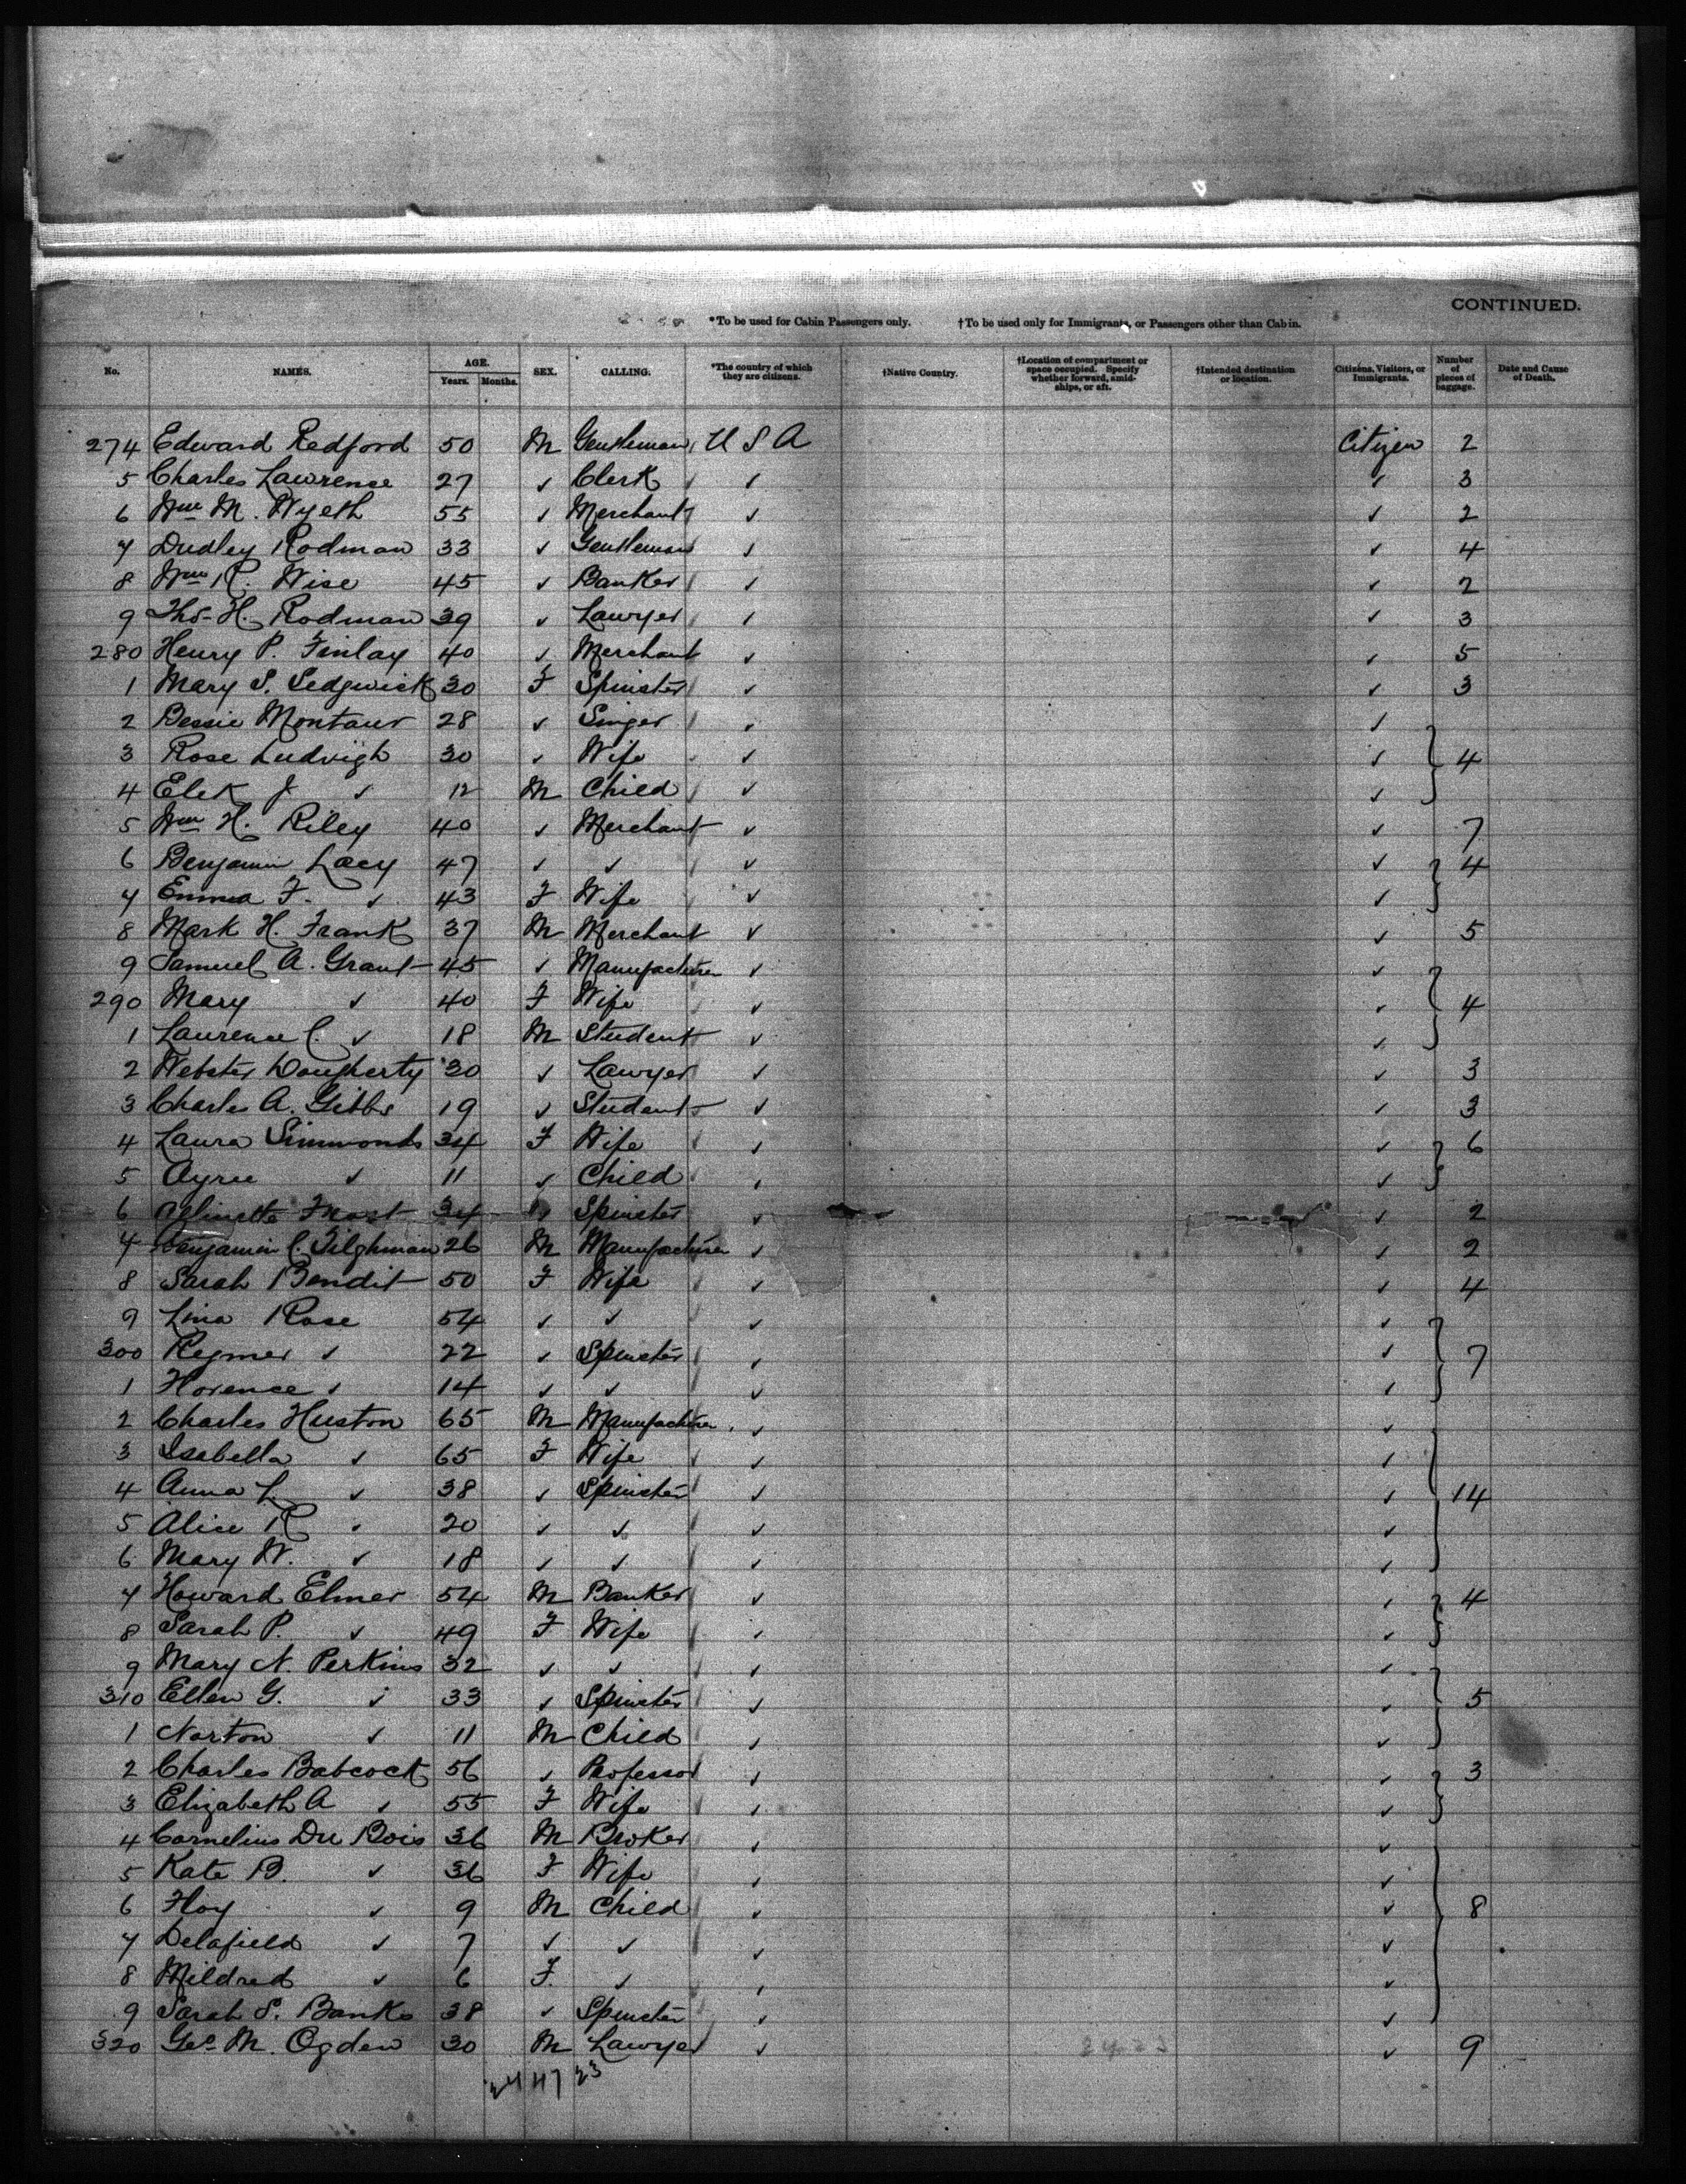 CONTINUED.
*To be used for Cabin Passengers only. †To be used only for Immigrants, or Passengers other than Cabin.
No. NAMES. AGE. Years. Months. SEX. CALLING. *The country of which they are citizens. †Native Country. †Location of compartment or space occupied. Specify whether forward, amidships, or aft. †Intended destination or location. Citizens, Visitors, or Immigrants. Number of pieces of baggage. Date and Cause of Death.
274 Edward Redford 50 M Gentleman U S A Citizen 2
5 Charles Lawrence 27 ✓ Clerk ✓ ✓ 3
6 Wm M. Wyeth 55 ✓ Merchant ✓ ✓ 2
7 Dudley Rodman 33 ✓ Gentleman ✓ ✓ 4
8 Wm R. Wise 45 ✓ Banker ✓ ✓ 2
9 Thos. H. Rodman 39 ✓ Lawyer ✓ ✓ 3
280 Henry P. Finlay 40 ✓ Merchant ✓ ✓ 5
1 Mary S. Sedgwick 30 F Spinster ✓ ✓ 3
2 Bessie 28 ✓ Singer ✓ ✓
3 Rose Ludvigh 30 ✓ Wife ✓ ✓ 4
4 Elek J ✓ 12 M Child ✓ ✓
5 Wm H. Riley 40 ✓ Merchant ✓ ✓ 7
6 Benjamin Lacy 47 ✓ ✓ ✓ ✓ 4
7 Emma F. ✓ 43 F Wife ✓ ✓
8 Mark H. Frank 37 M Merchant ✓ ✓ 5
9 Samuel A. Grant 45 ✓ Manufacturer ✓ ✓
290 Mary ✓ 40 F Wife ✓ ✓ 4
1 Laurence C. ✓ 18 M Student ✓ ✓
2 Webster Dougherty 30 ✓ Lawyer ✓ ✓ 3
3 Charles A. Gibbs 19 ✓ Student ✓ ✓ 3
4 Laura Simmonds 34 F Wife ✓ ✓ 6
5 ✓ 11 ✓ Child ✓ ✓
6 Frost 34 ✓ Spinster ✓ ✓ 2
7 Benjamin C. Tilghman 26 M Manufacturer ✓ ✓ 2
8 Sarah Bendit 50 F Wife ✓ ✓ 4
9 Lina Rose 54 ✓ ✓ ✓ ✓
300 ✓ 22 ✓ Spinster ✓ ✓ 7
1 Florence ✓ 14 ✓ ✓ ✓ ✓
2 Charles Huston 65 M Manufacturer ✓ ✓
3 Isabella ✓ 65 F Wife ✓ ✓
4 Anna L. ✓ 38 ✓ Spinster ✓ ✓ 14
5 Alice R ✓ 20 ✓ ✓ ✓ ✓
6 Mary W. ✓ 18 ✓ ✓ ✓ ✓
7 Howard Elmer 54 M Banker ✓ ✓ 4
8 Sarah P. ✓ 49 F Wife ✓ ✓
9 Mary N. Perkins 32 ✓ ✓ ✓ ✓
310 Ellen G. ✓ 33 ✓ Spinster ✓ ✓ 5
1 Norton ✓ 11 M Child ✓ ✓
2 Charles Babcock 56 ✓ Professor ✓ ✓ 3
3 Elizabeth A ✓ 55 F Wife ✓ ✓
4 Cornelius Du Bois 36 M Broker ✓ ✓
5 Kate B. ✓ 36 F Wife ✓ ✓
6 Floy ✓ 9 M Child ✓ ✓ 8
7 Delafield ✓ 7 ✓ ✓ ✓ ✓
8 Mildred ✓ 6 F. ✓ ✓ ✓
9 Sarah S. Banks 38 ✓ Spinster ✓ ✓
320 Geo. M. Ogden 30 M Lawyer ✓ ✓ 9
24 47 23